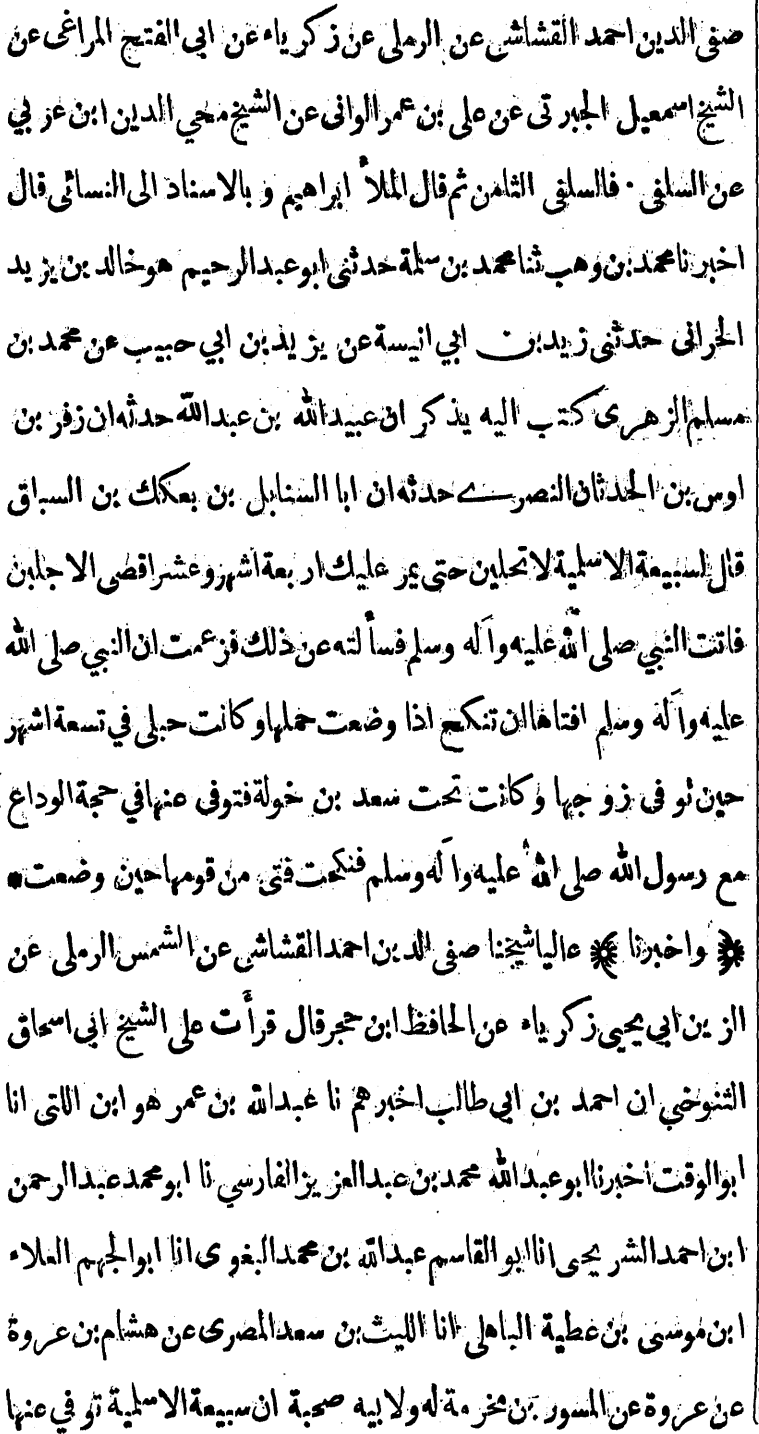 صفى الدين احمد القشاشى عن الرملى عن زكرياء عن ابى الفتح المراغى عن
الشيخ اسمعيل الجبرتى عن على بن عمر الوانى عن الشيخ محي الدين ابن عربي
عن السلفى · فالسلفى الثامن ثم قال الملأ ابراهيم و بالاسناد الى النسائى قال
اخبرنا محمد بن وهب ثنا محمد بن سلمة حدثنى ابو عبد الرحيم هو خالد بن يزيد
الحرانى حدثنى زيد بن ابي انيسة عن يزيد بن ابي حبيب عن محمد بن
مسلم الزهرى كتب اليه يذكر ان عبيد الله بن عبد الله حدثه ان زفر بن
اوس بن الحدثان النصرى حدثه ان ابا السنابل بن بعكك بن السباق
قال لسبيعة الاسلمية لا تحلين حتى يمر عليك اربعة اشهر وعشر اقصى الاجلين
فاتت النبي صلى الله عليه وآله وسلم فسألته عن ذلك فزعمت ان النبي صلى الله
عليه وآله وسلم افتاها ان تنكح اذا وضعت حملها وكانت حبلى في تسعة اشهر
حين توفى زوجها وكانت تحت سعد بن خولة فتوفى عنها في حجة الوداع
مع رسول الله صلى الله عليه وآله وسلم فنكحت فتى من قومها حين وضعت *
﴿ واخبرنا ﴾ عاليا شيخنا صفى الدين احمد القشاشى عن الشمس الرملى عن
الزين ابي يحيى زكرياء عن الحافظ ابن حجر قال قرأت على الشيخ ابى اسحاق
التنوخي ان احمد بن ابي طالب اخبرهم نا عبد الله بن عمر هو ابن اللتى انا
ابو الوقت أخبرنا ابو عبد الله محمد بن عبد العزيز الفارسي نا ابو محمد عبد الرحمن
ابن احمد الشريحى انا ابو القاسم عبد الله بن محمد البغوى انا ابو الجهم العلاء
ابن موسى بن عطية الباهلى انا الليث بن سعد المصرى عن هشام بن عروة
عن عروة عن المسور بن مخرمة له ولابيه صحبة ان سبيعة الاسلمية توفي عنها